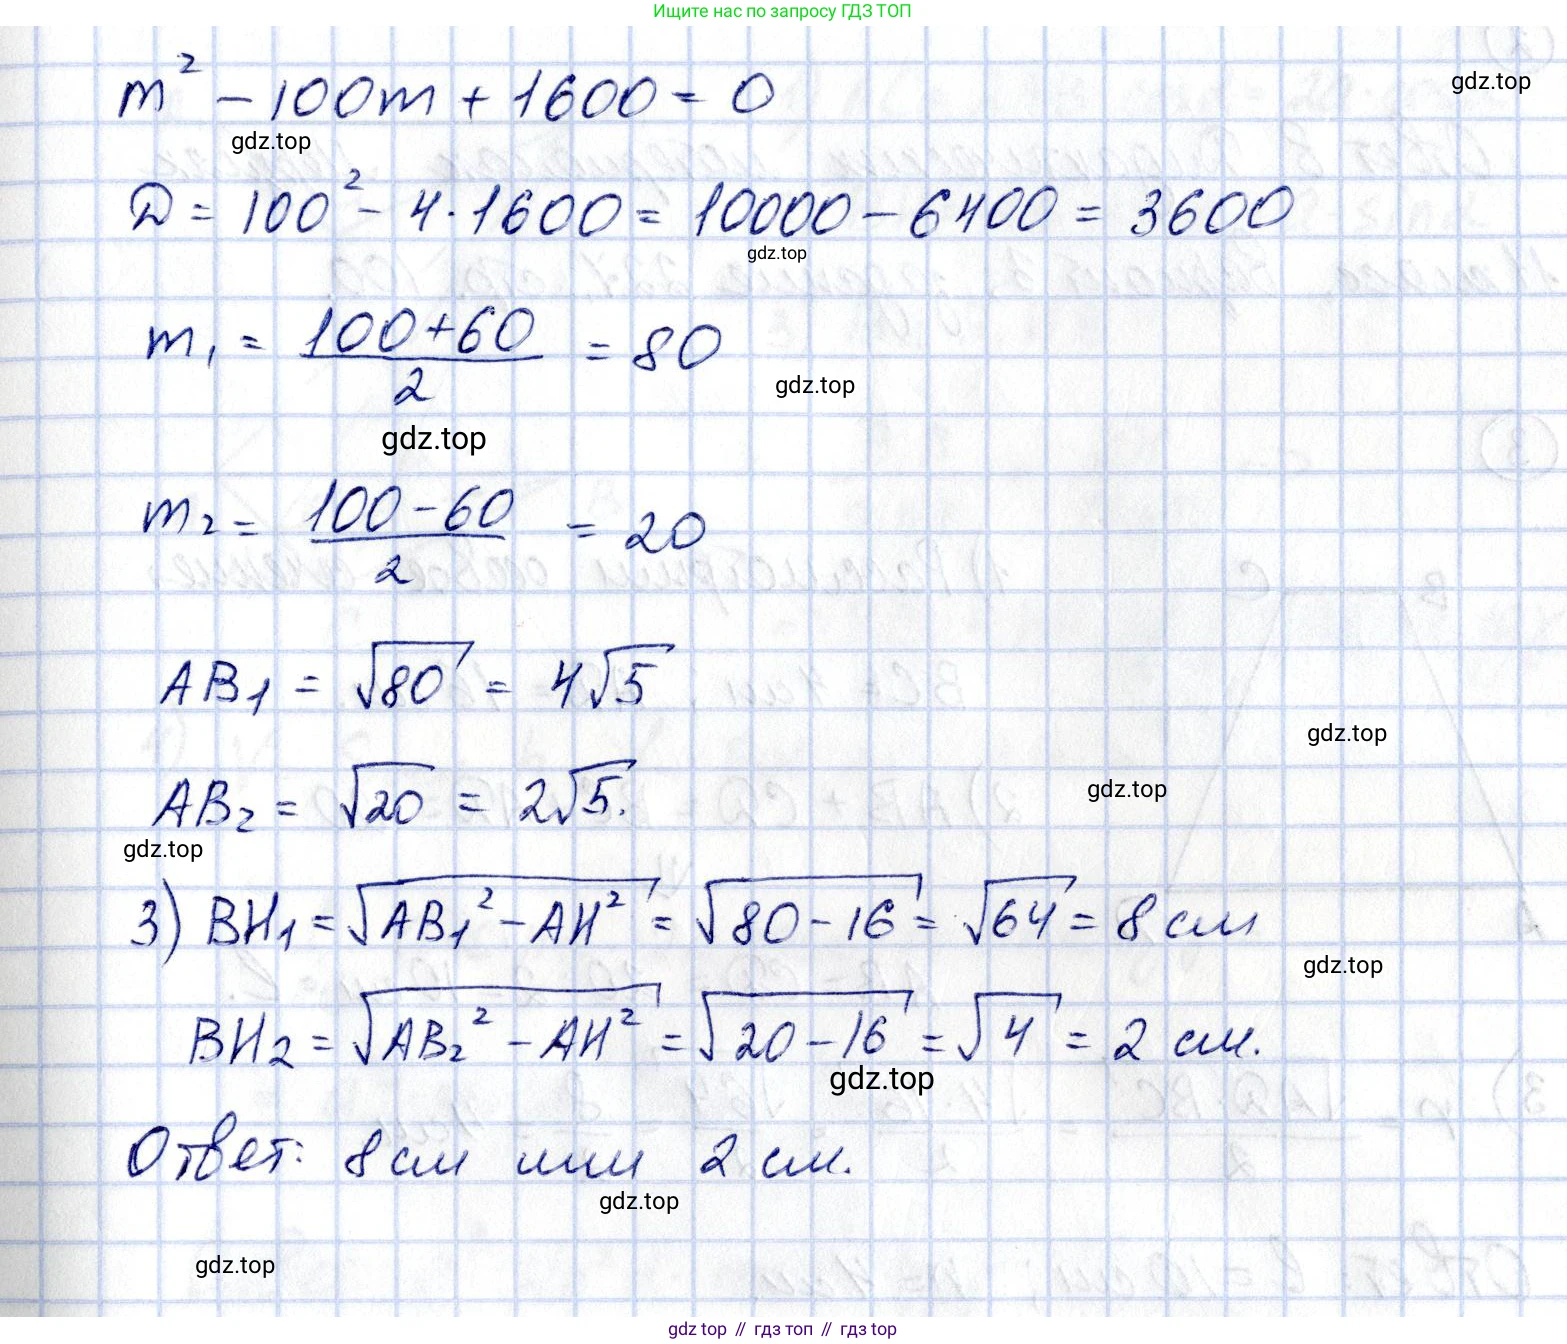 Ищите нас по запросу ГДЗ ТОП
m² - 100m + 1600 = 0
gdz.top
gdz.top
D = 100² - 4·1600 = 10000 - 6400 = 3600
gdz.top
m₁ = (100+60)/2 = 80
gdz.top
gdz.top
m₂ = (100-60)/2 = 20
AB₁ = √80 = 4√5
gdz.top
AB₂ = √20 = 2√5.
gdz.top
gdz.top
3) BH₁ = √(AB₁² - AH²) = √(80-16) = √64 = 8 см
gdz.top
BH₂ = √(AB₂² - AH²) = √(20-16) = √4 = 2 см.
gdz.top
Ответ: 8 см или 2 см.
gdz.top
gdz.top
gdz top // гдз топ // gdz top